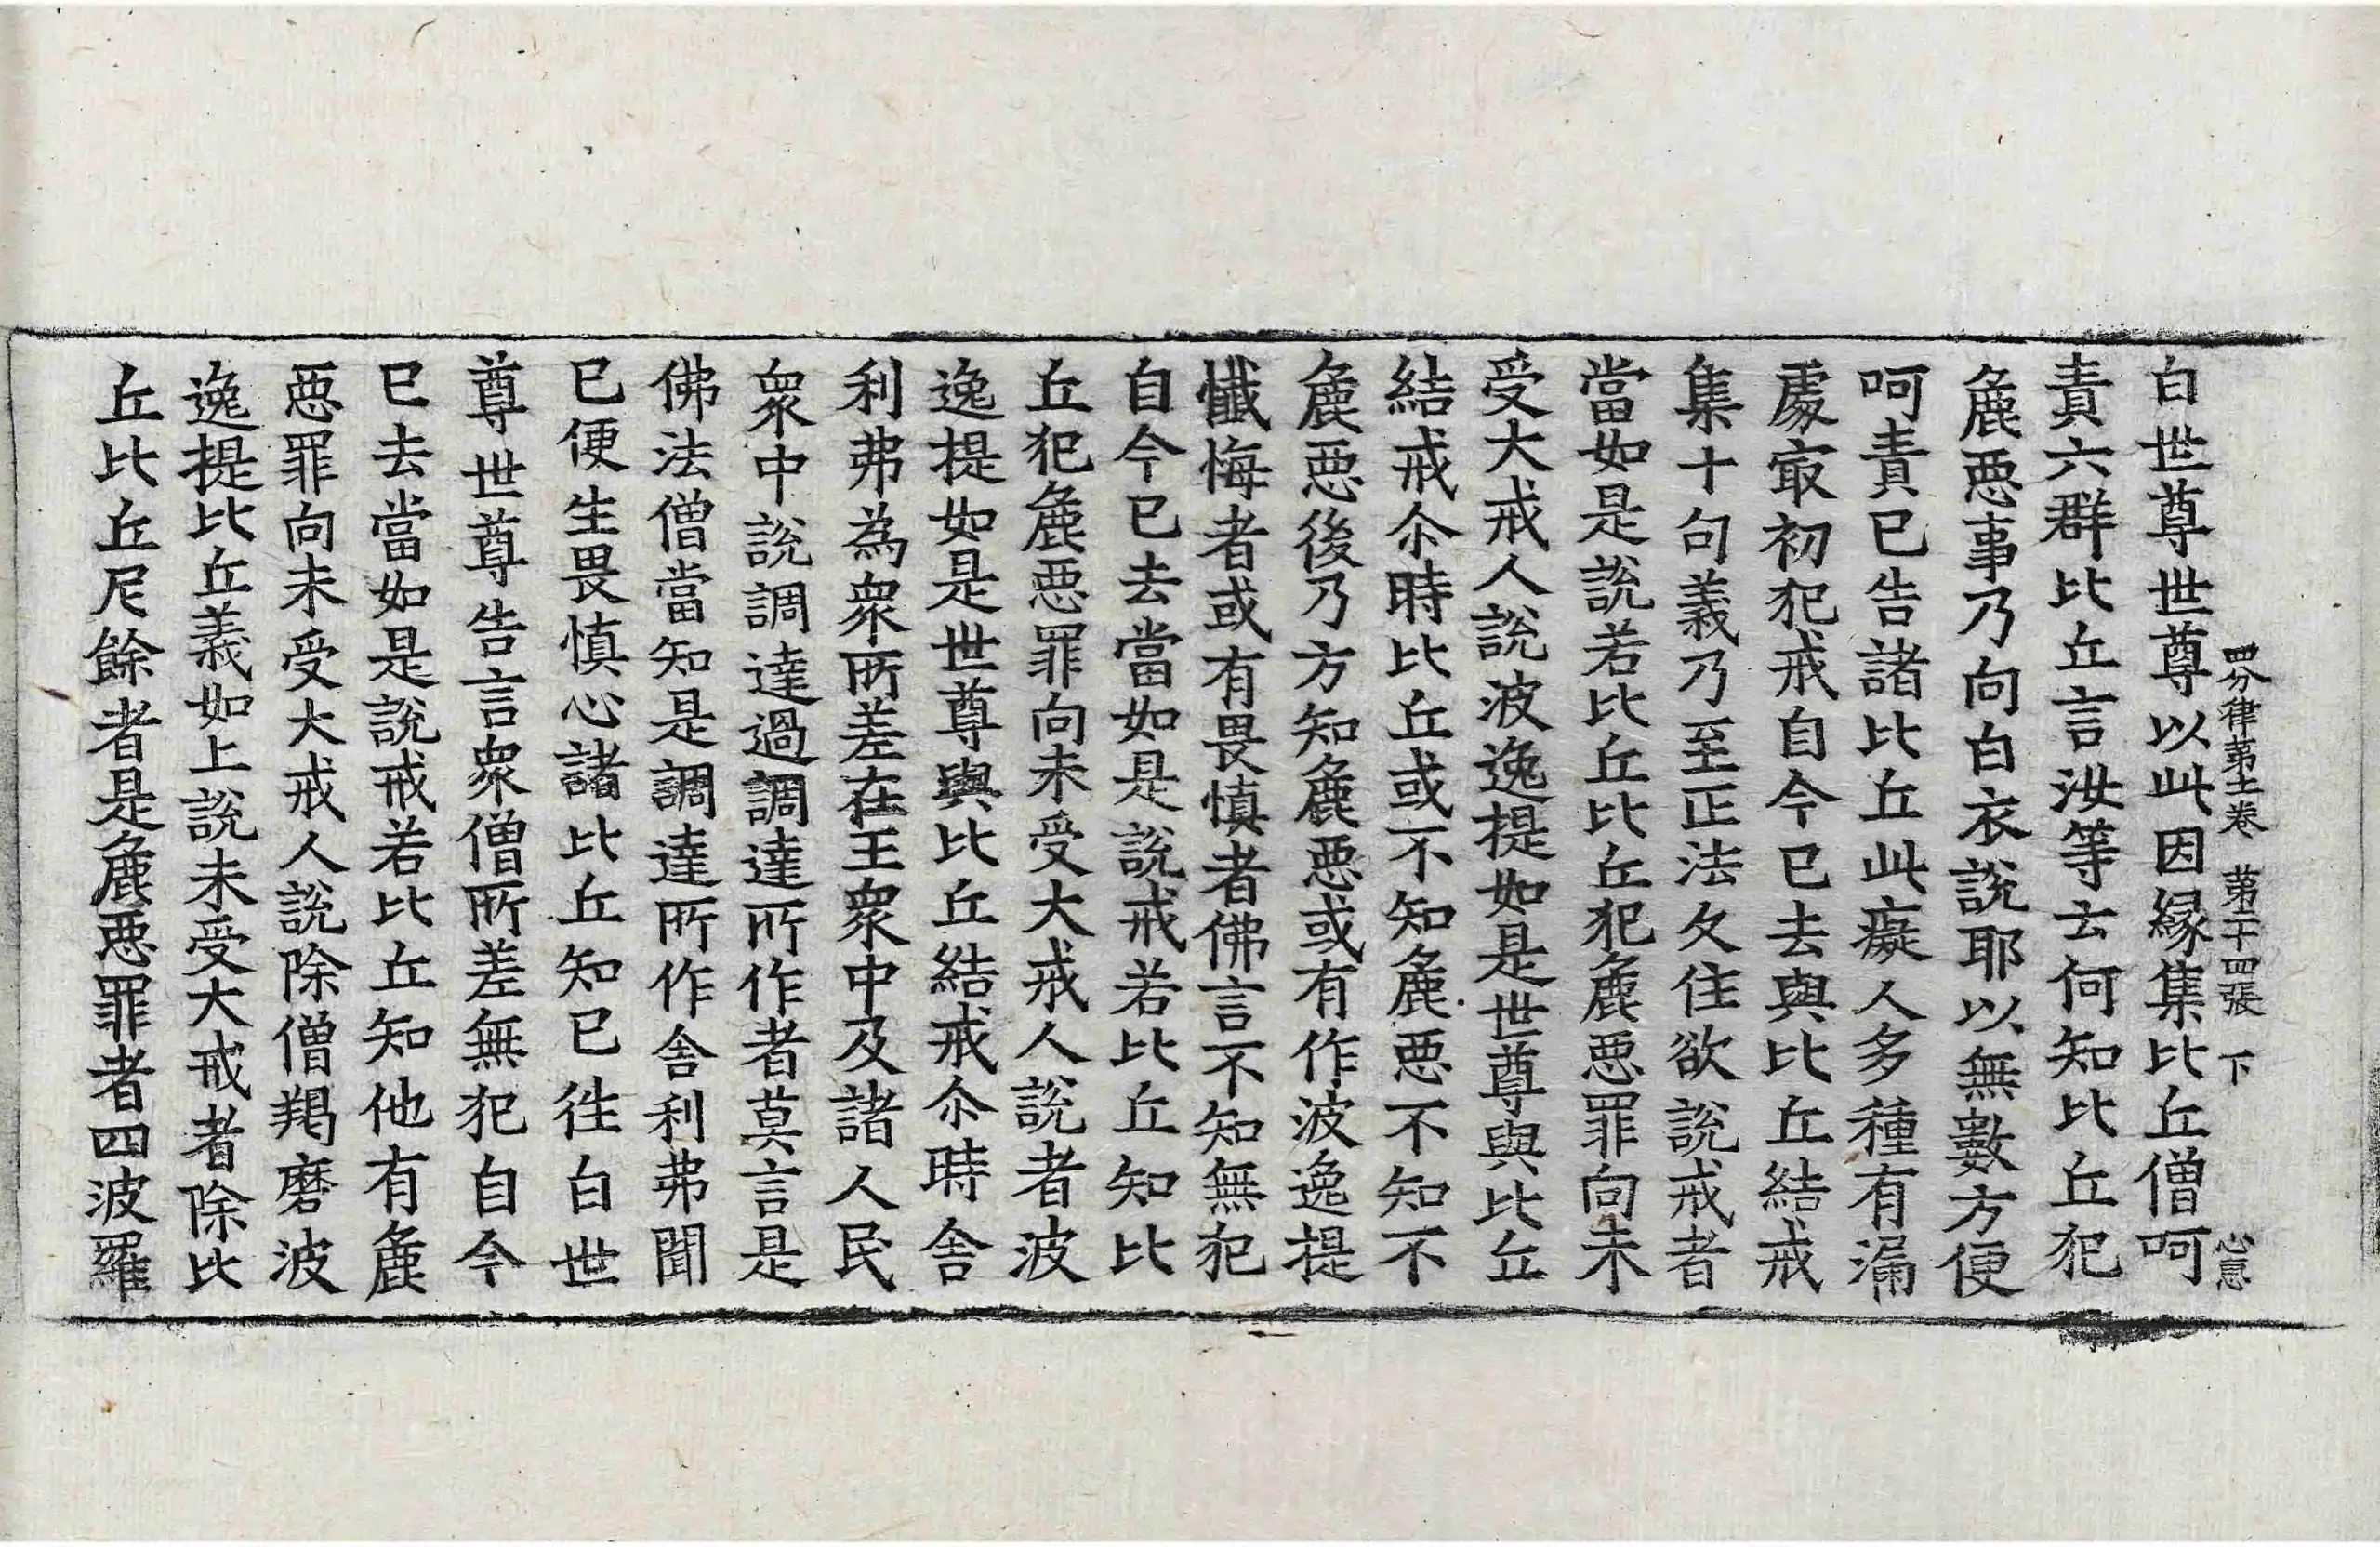 四分律第十一卷　第二十四張　下
白世尊世尊以此因縁集比丘僧呵
責六群比丘言汝等云何知比丘犯
麁惡事乃向白衣說耶以無數方便
呵責已告諸比丘此癡人多種有漏
處㝡初犯戒自今已去與比丘結戒
集十句義乃至正法久住欲說戒者
當如是說若比丘比丘犯麁惡罪向未
受大戒人說波逸提如是世尊與比丘
結戒尒時比丘或不知麁惡不知不
麁惡後乃方知麁惡或有作波逸提
懺悔者或有畏慎者佛言不知無犯
自今已去當如是說戒若比丘知比
丘犯麁惡罪向未受大戒人說者波
逸提如是世尊與比丘結戒尒時舍
利弗為衆所差在王衆中及諸人民
衆中說調達過調達所作者莫言是
佛法僧當知是調達所作舍利弗聞
已便生畏慎心諸比丘知已往白世
尊世尊告言衆僧所差無犯自今
已去當如是說戒若比丘知他有麁
惡罪向未受大戒人說除僧羯磨波
逸提比丘義如上說未受大戒者除比
丘比丘尼餘者是麁惡罪者四波羅